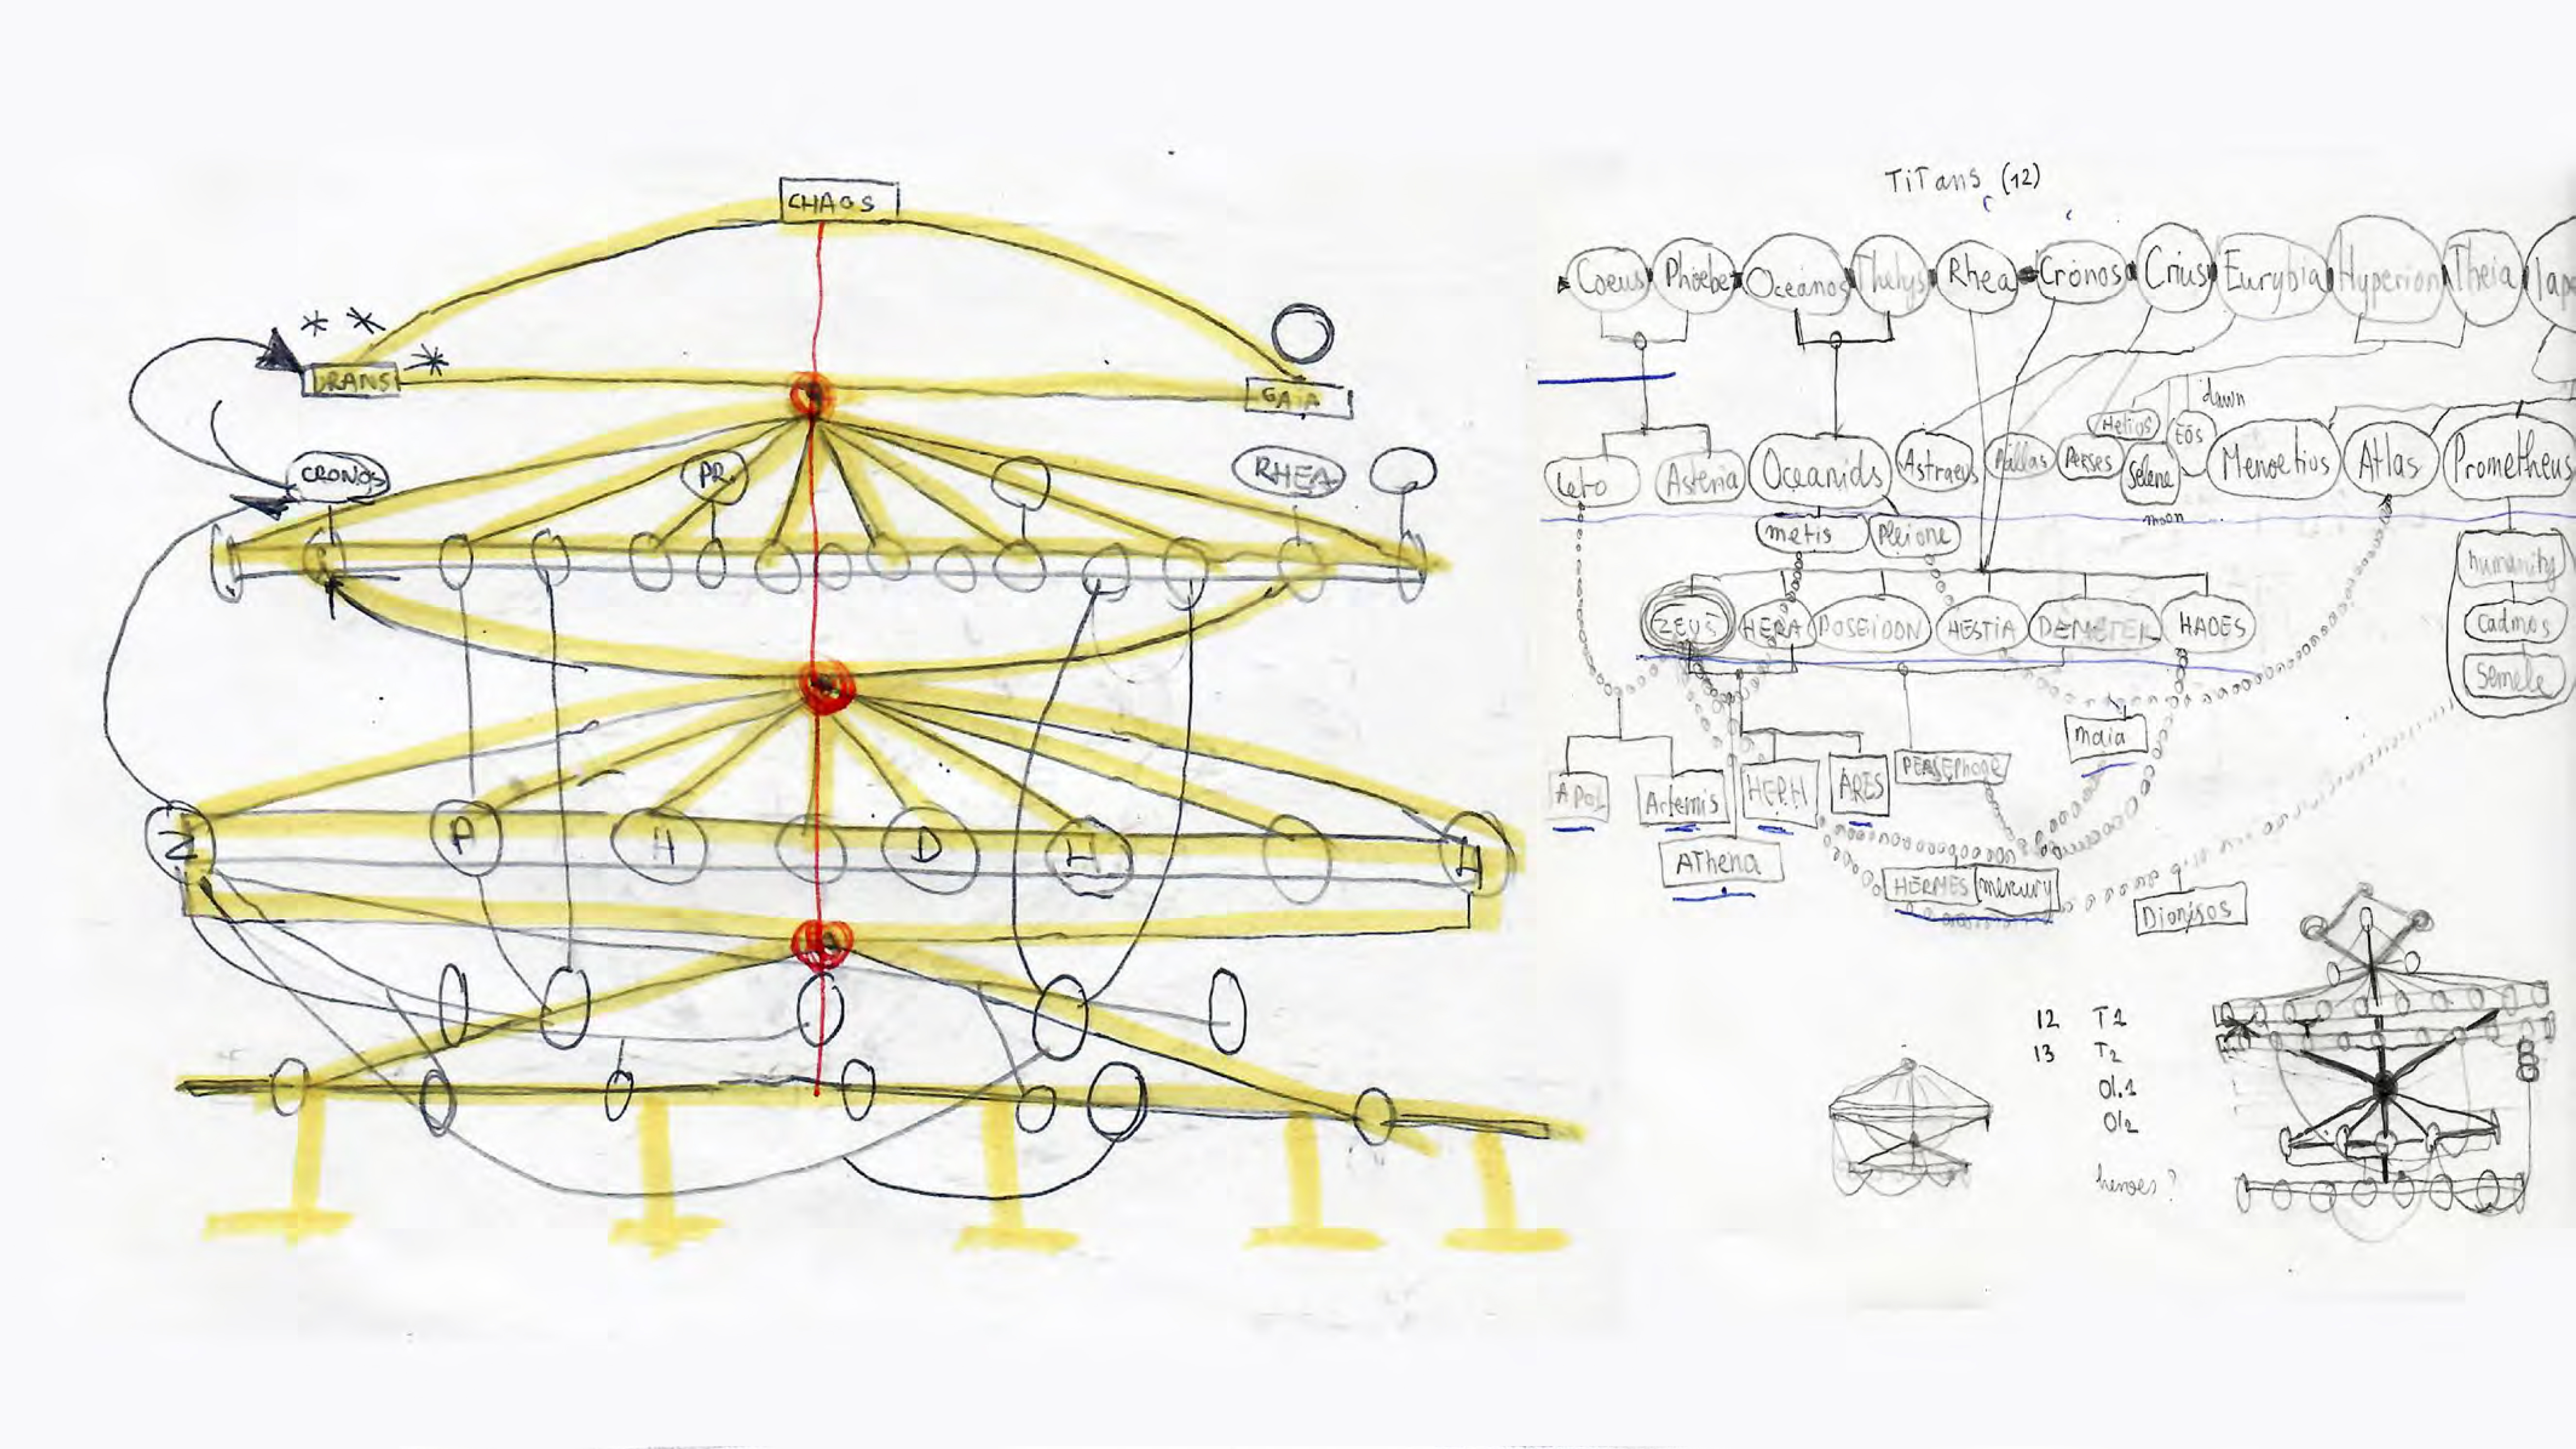 CHAOS
URANS
GAIA
CRONOS
PR.
RHEA
Z
P
H
D
H
H
TiTans (12)
Coeus
Phoebe
Oceanos
Thethys
Rhea
Cronos
Crius
Eurybia
Hyperion
Theia
Iape
dawn
Leto
Asteria
Oceanids
Astraeus
Pallas
Perses
Helios
Selene
Eos
Menoetius
Atlas
Prometheus
moon
metis
Pleione
humanity
cadmos
Semele
ZEUS
HERA
POSEIDON
HESTIA
DEMETER
HADES
maia
APOL
Artemis
HEPH
ARES
PERSEPHONE
AThena
HERMES
mercury
Dionisos
12 T1
13 T2
Ol.1
Ol2
heroes?